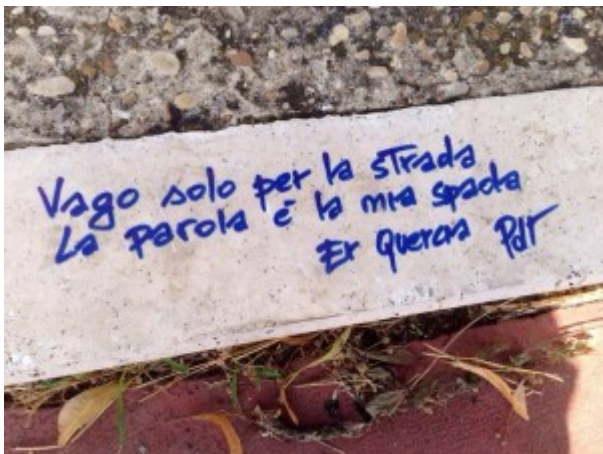 Vago solo per la strada
La parola è la mia spada
Er Quercia PdT